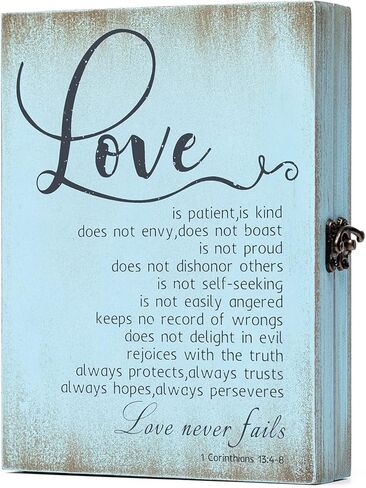 Love
is patient,is kind
does not envy,does not boast
is not proud
does not dishonor others
is not self-seeking
is not easily angered
keeps no record of wrongs
does not delight in evil
rejoices with the truth
always protects,always trusts
always hopes,always perseveres
Love never fails
1 Corinthians 13:4-8